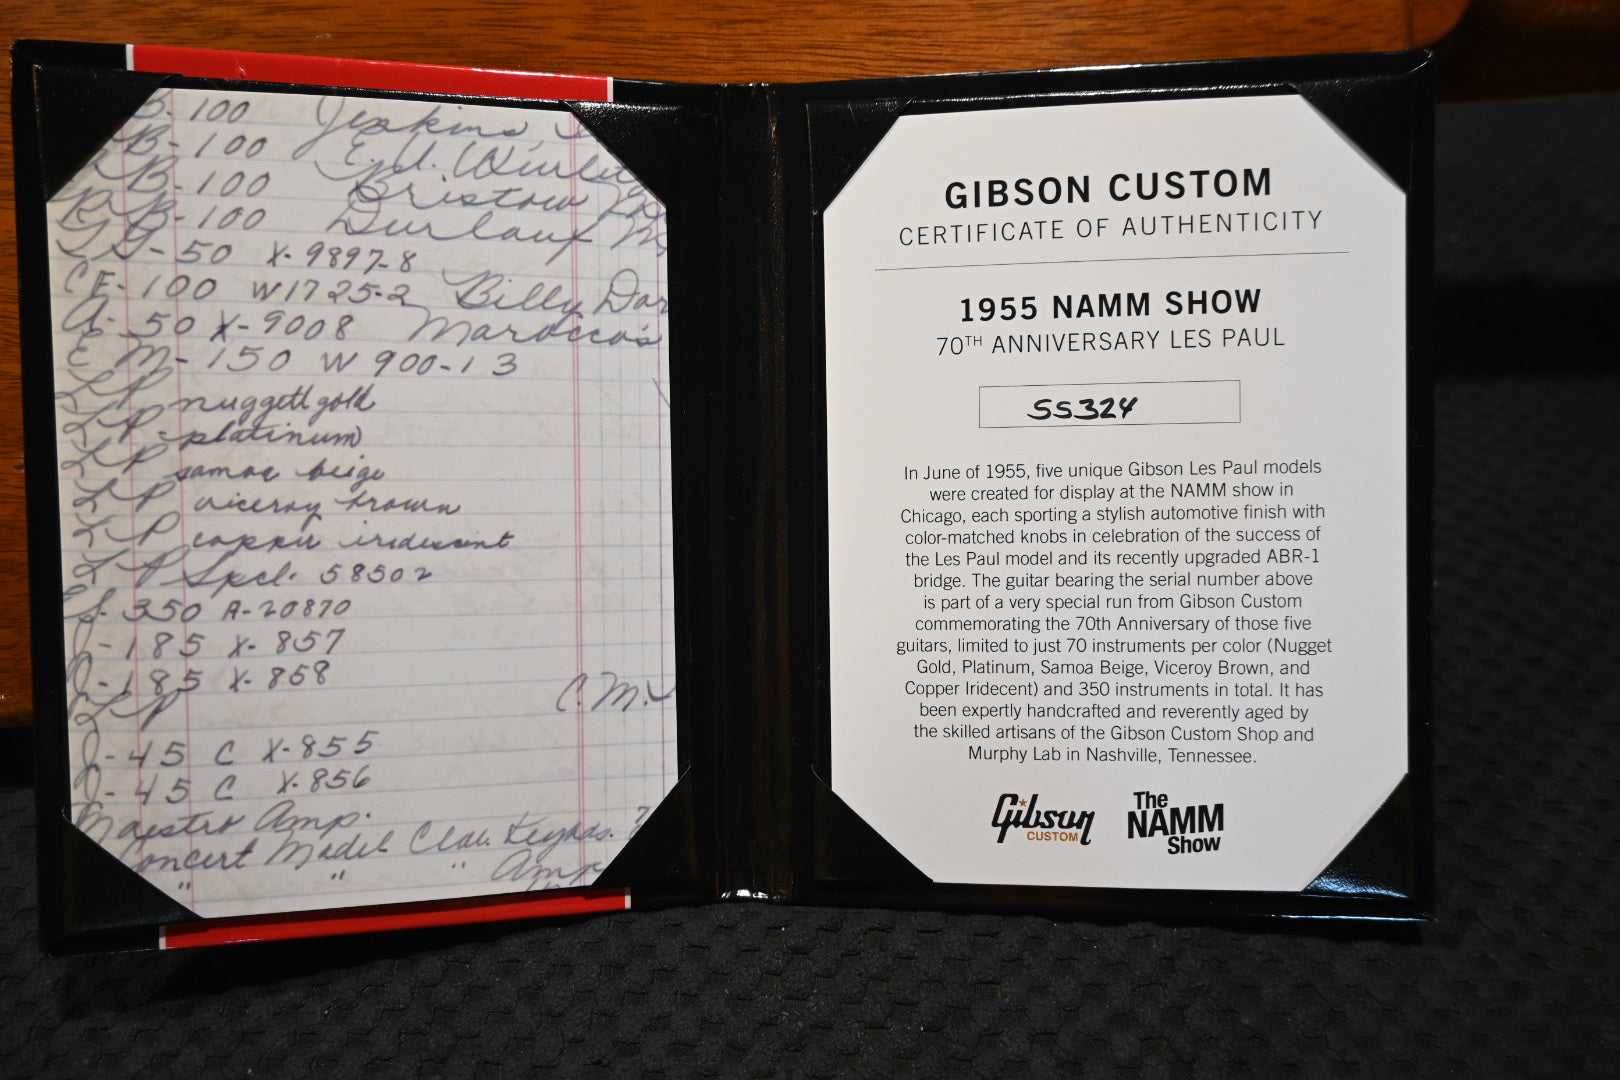 B-100 Jenkins
B-100 E.U. Wurlit
B-100 Bristow
B-100 Durlauf
GS-50 X-9897-8
CF-100 W1725-2 Billy Dar
A-50 X-9008 Marocco's
EM-150 W 900-13
LP nuggett gold
LP-platinum
LP samoa beige
LP viceroy brown
LP copper iridescent
LP Spcl. 58502
350 A-20870
J-185 X-857
J-185 X-858
LP C.M.
J-45 C X-855
J-45 C X-856
Maestro Amp.
Concert Model Clav. Keybds.
" " " Amp
GIBSON CUSTOM
CERTIFICATE OF AUTHENTICITY
1955 NAMM SHOW
70TH ANNIVERSARY LES PAUL
55324
In June of 1955, five unique Gibson Les Paul models
were created for display at the NAMM show in
Chicago, each sporting a stylish automotive finish with
color-matched knobs in celebration of the success of
the Les Paul model and its recently upgraded ABR-1
bridge. The guitar bearing the serial number above
is part of a very special run from Gibson Custom
commemorating the 70th Anniversary of those five
guitars, limited to just 70 instruments per color (Nugget
Gold, Platinum, Samoa Beige, Viceroy Brown, and
Copper Iridecent) and 350 instruments in total. It has
been expertly handcrafted and reverently aged by
the skilled artisans of the Gibson Custom Shop and
Murphy Lab in Nashville, Tennessee.
Gibson
CUSTOM
The
NAMM
Show